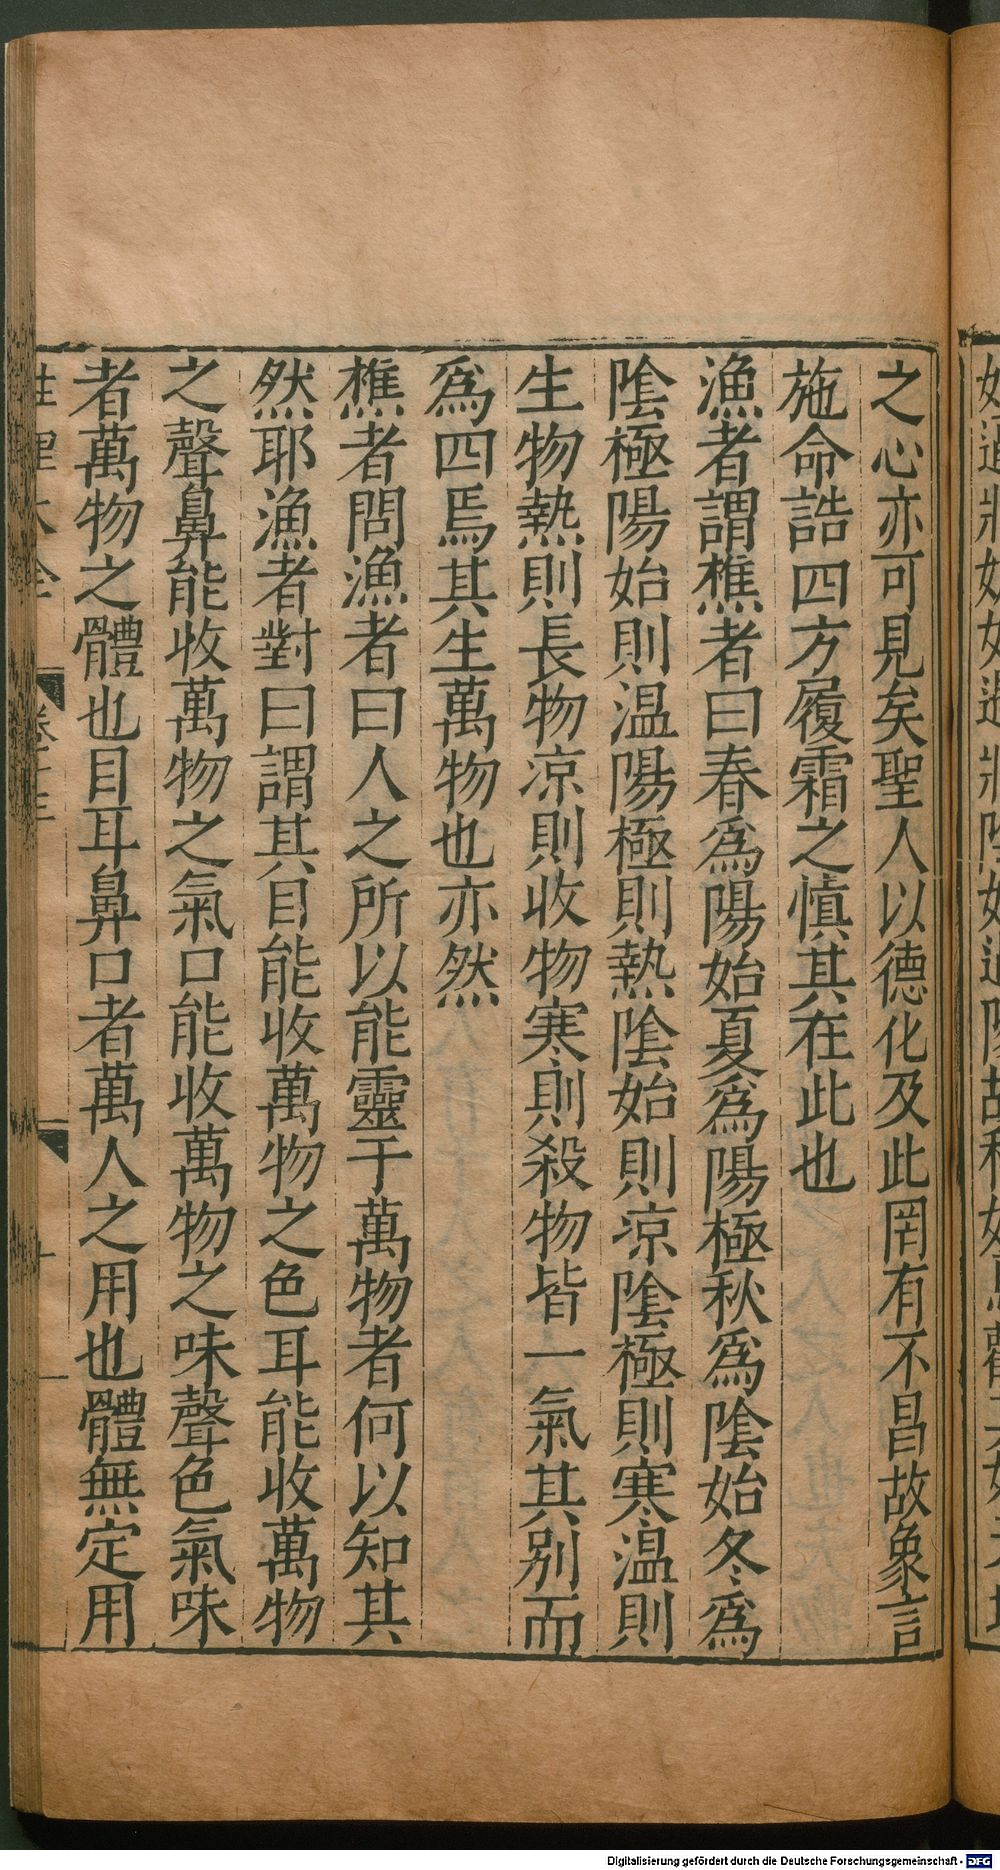 之心亦可見矣聖人以德化及此罔有不昌故象言
施命誥四方履霜之慎其在此也
漁者謂樵者曰春爲陽始夏爲陽極秋爲陰始冬爲
陰極陽始則温陽極則熱陰始則凉陰極則寒温則
生物熱則長物凉則收物寒則殺物皆一氣其别而
爲四焉其生萬物也亦然
樵者問漁者曰人之所以能靈于萬物者何以知其
然耶漁者對曰謂其目能收萬物之色耳能收萬物
之聲鼻能收萬物之氣口能收萬物之味聲色氣味
者萬物之體也目耳鼻口者萬人之用也體無定用
性理大全
Digitalisierung gefördert durch die Deutsche Forschungsgemeinschaft - DFG